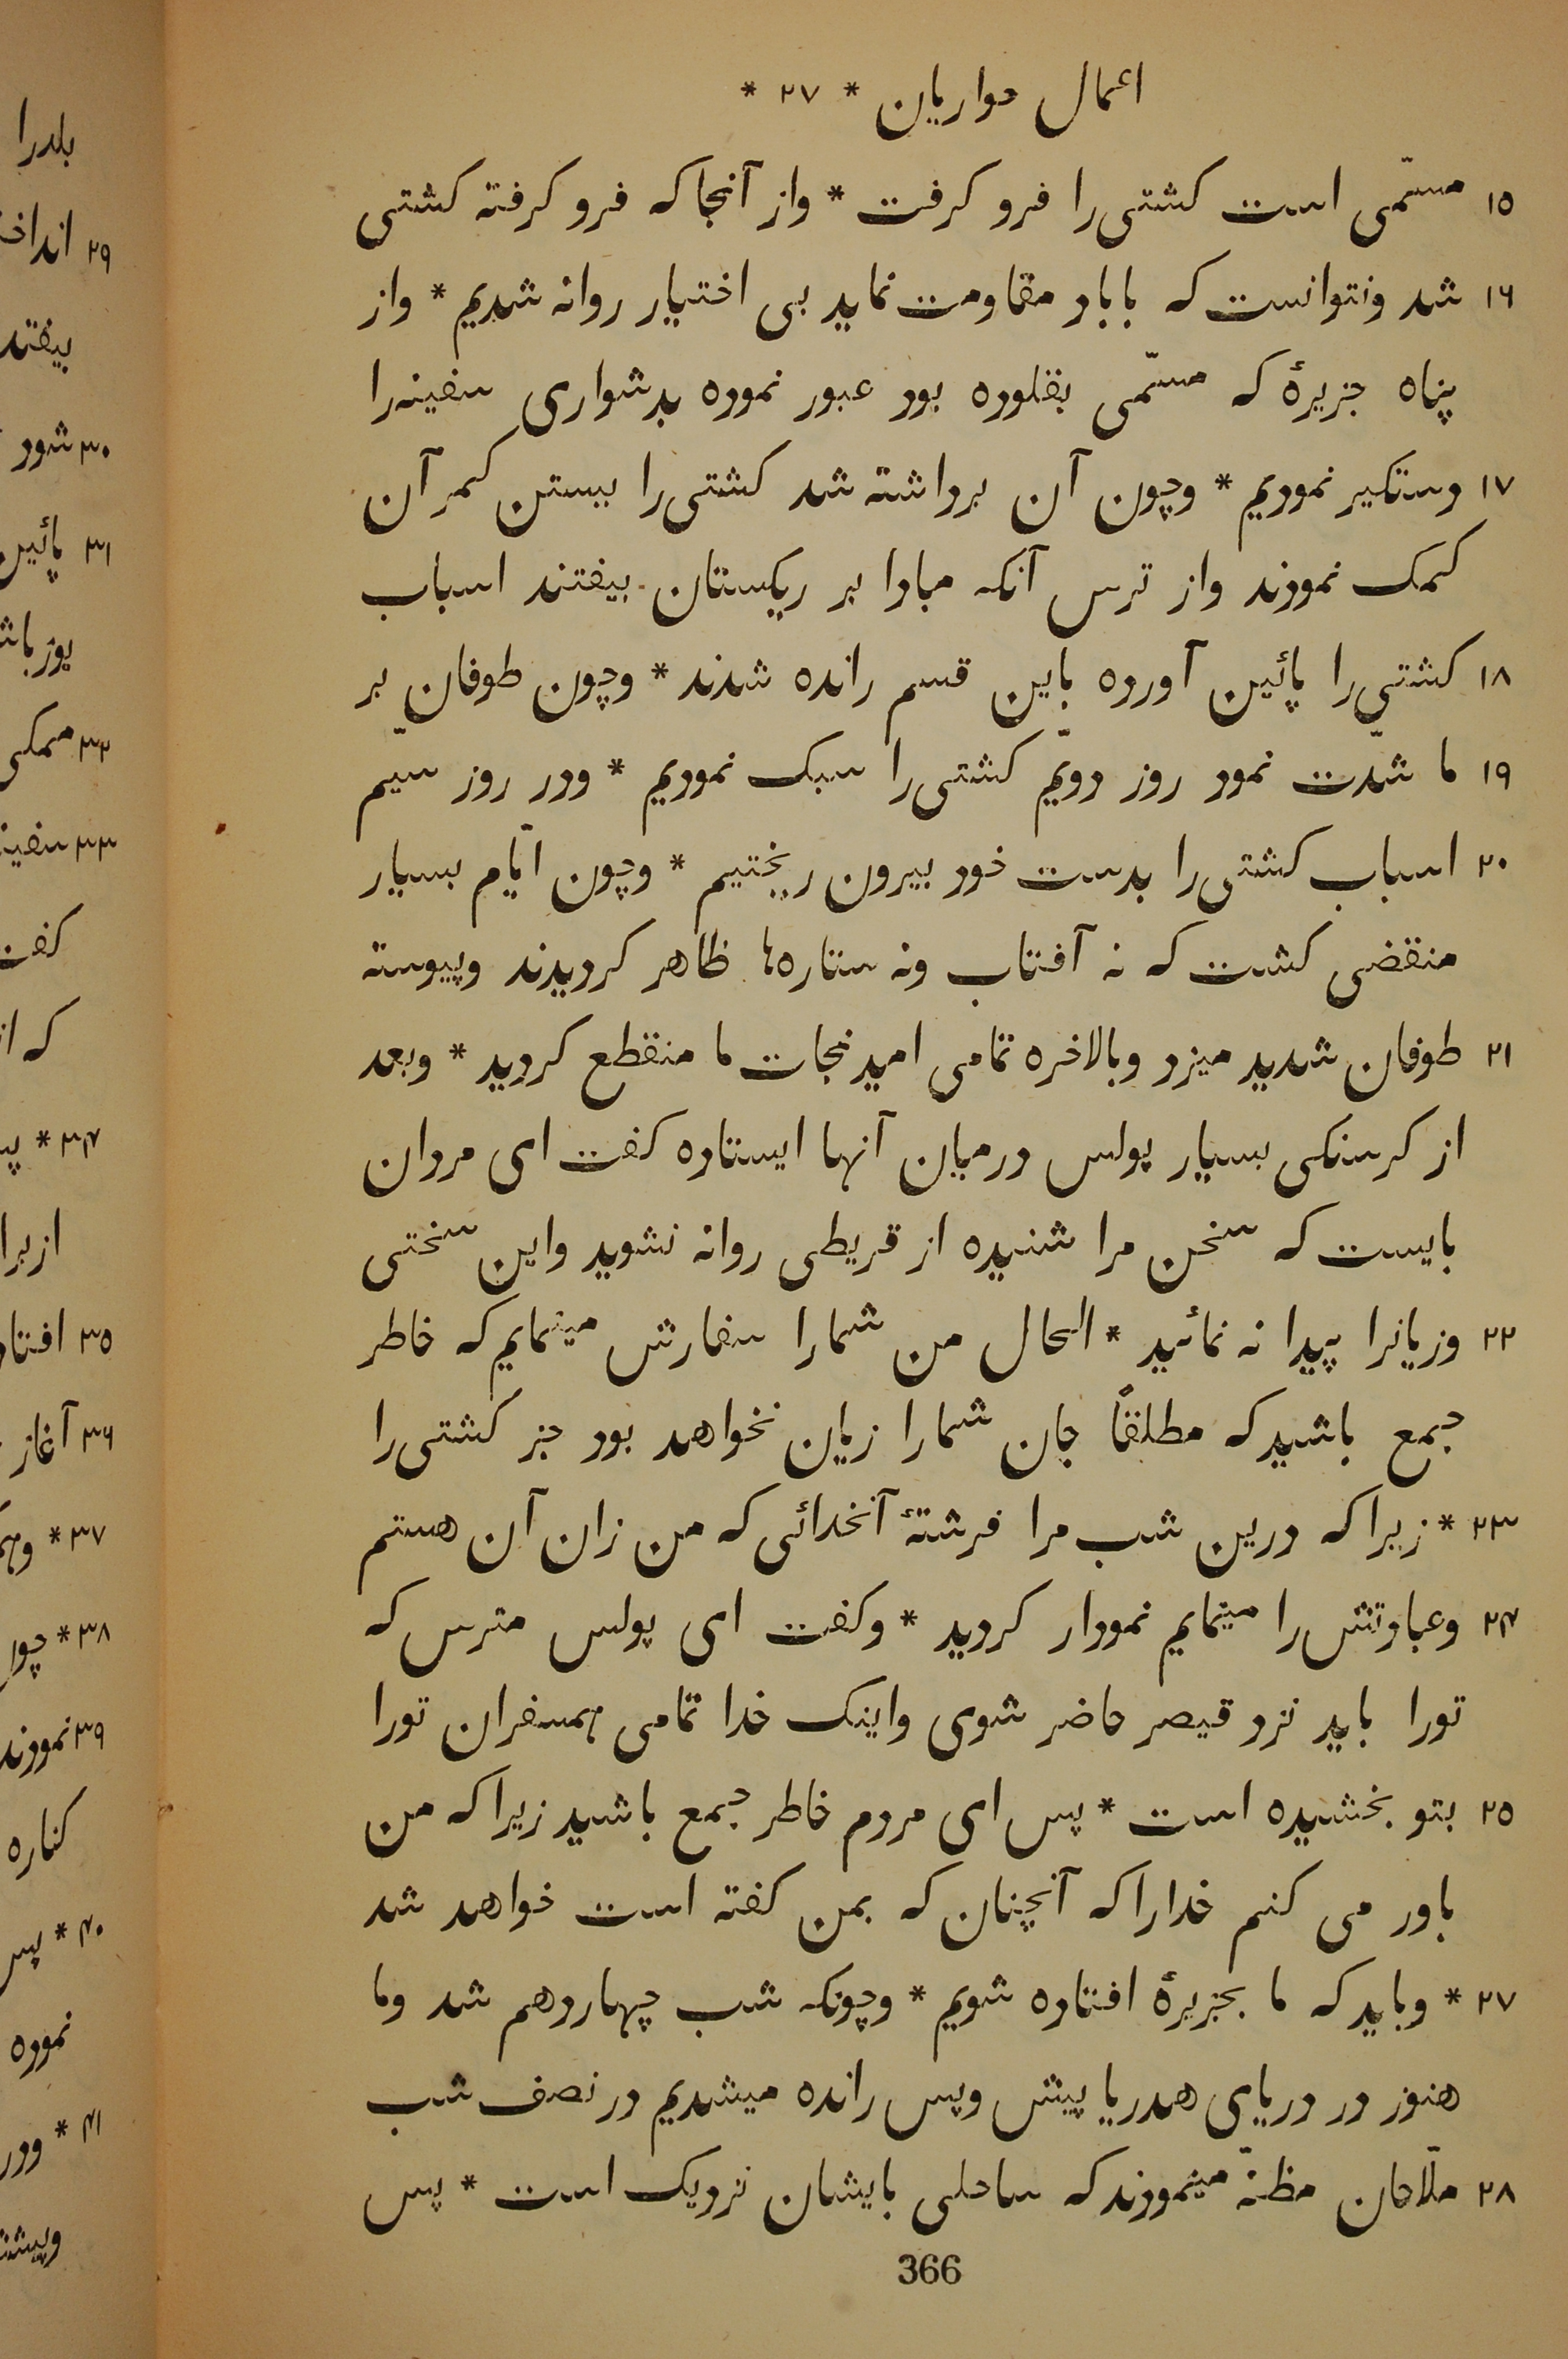 اعمال حواریان * ۲۷ *
۱۵ مسمّی است کشتی را فرو کرفت * واز آنجا که فرو کرفته کشتی
۱۶ شد ونتوانست که با باد مقاومت نماید بی اختیار روانه شدیم * واز
پناه جزیرهٔ که مسمّی بقلوده بود عبور نموده بدشواری سفینه را
۱۷ دستکیر نمودیم * وچون آن برداشته شد کشتی را ببستن کمر آن
کمک نمودند واز ترس آنکه مبادا بر ریکستان بیفتند اسباب
۱۸ کشتی را پائین آورده باین قسم رانده شدند * وچون طوفان بر
۱۹ ما شدّت نمود روز دویّم کشتی را سبک نمودیم * ودر روز سیّم
۲۰ اسباب کشتی را بدست خود بیرون ریختیم * وچون ایّام بسیار
منقضی کشت که نه آفتاب ونه ستاره‌ها ظاهر کردیدند وپیوسته
۲۱ طوفان شدید میزد وبالاخره تمامی امید نجات ما منقطع کردید * وبعد
از کرسنکی بسیار پولس درمیان آنها ایستاده کفت ای مردان
بایست که سخن مرا شنیده از قریطی روانه نشوید واین سختی
۲۲ وزیانرا پیدا نه نمائید * الحال من شمارا سفارش مینمایم که خاطر
جمع باشید که مطلقاً جان شمارا زیان نخواهد بود جز کشتی را
۲۳ * زیرا که درین شب مرا فرشتهٔ آنخدائی که من زان آن هستم
۲۴ وعبادتش را مینمایم نمودار کردید * وکفت ای پولس مترس که
تورا باید نزد قیصر حاضر شوی واینک خدا تمامی همسفران تورا
۲۵ بتو بخشیده است * پس ای مردم خاطر جمع باشید زیرا که من
باور می کنم خدارا که آنچنان که بمن کفته است خواهد شد
۲۷ * وباید که ما بجزیرهٔ افتاده شویم * وچونکه شب چهاردهم شد وما
هنوز در دریای هدریا پیش وپس رانده میشدیم در نصف شب
۲۸ ملّاحان مظنّه مینمودند که ساحلی بایشان نزدیک است * پس
366